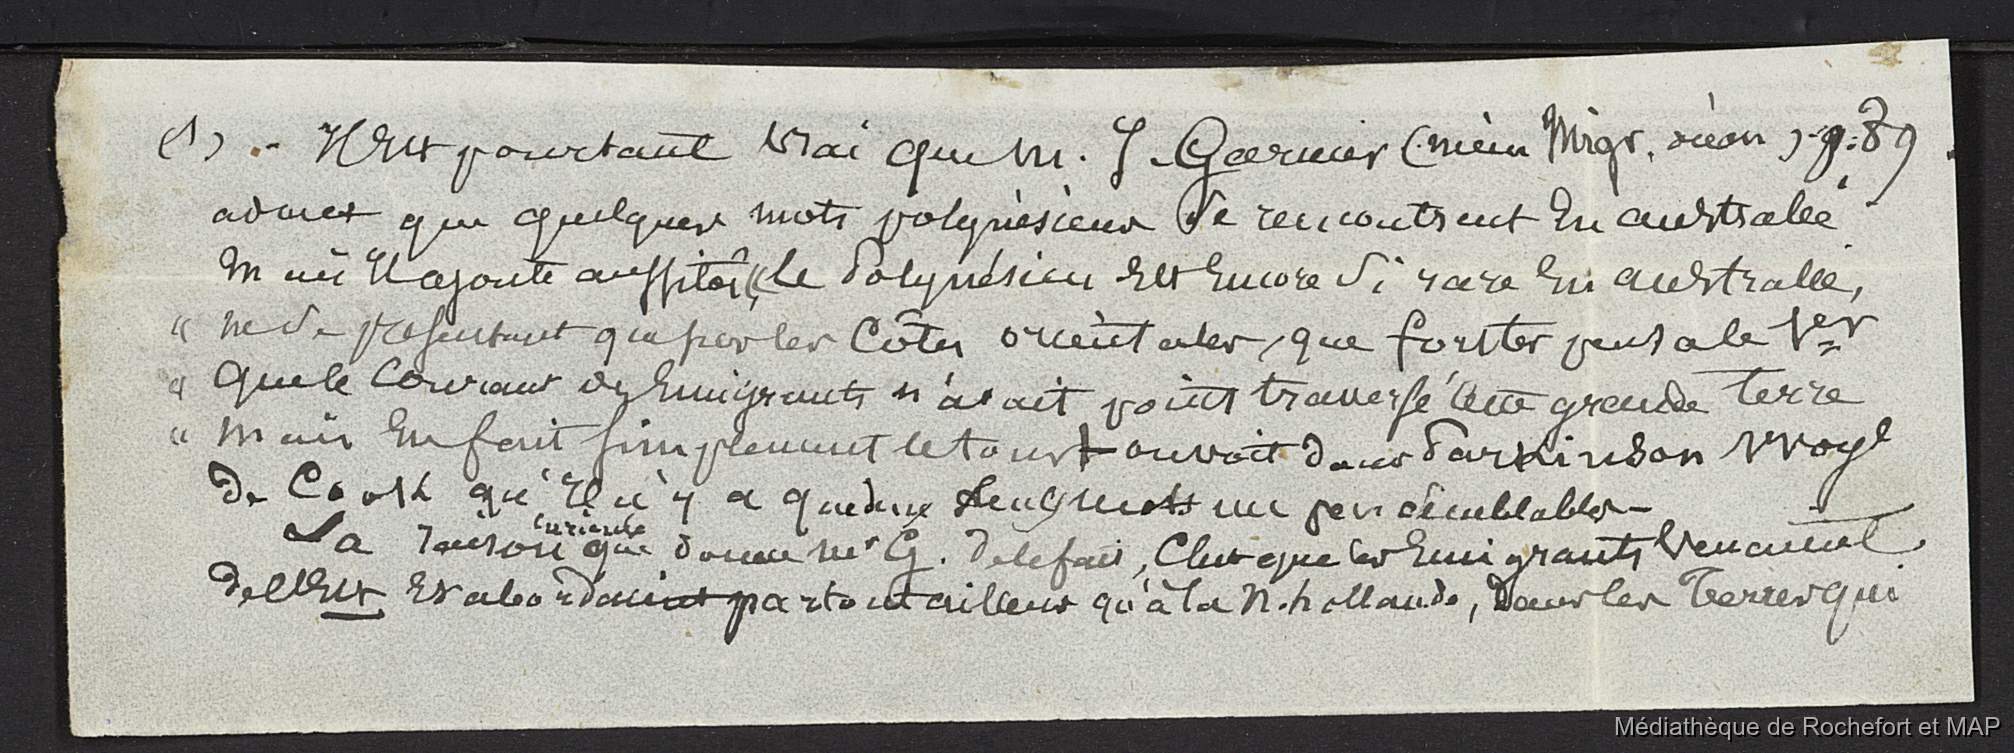 (1) - Il est pourtant vrai que M. J. Garnier (mém. Migr. océan. p. 89
admet que quelques mots polynésiens se rencontrent En australie
Mais Il ajoute aussitôt, « Le Polynésien Est Encore si rare En australie,
« ne se présentant que par les Côtes orientales, que forster pensa le 1er
« Que le Courant des Emigrants n'avait point traversé cette grande Terre
« Mais En fait simplement le tour on voit dans Parkinson voyl
de Cook qu'Il n'y a que deux seuls mots un peu semblables -
La raison curieuse que donne Mr G. de le fait, C'est que les Emigrants Venaient
de l'Est Et abordaient partout ailleurs qu'à la N. hollande, Dans les Terres qui
Médiathèque de Rochefort et MAP